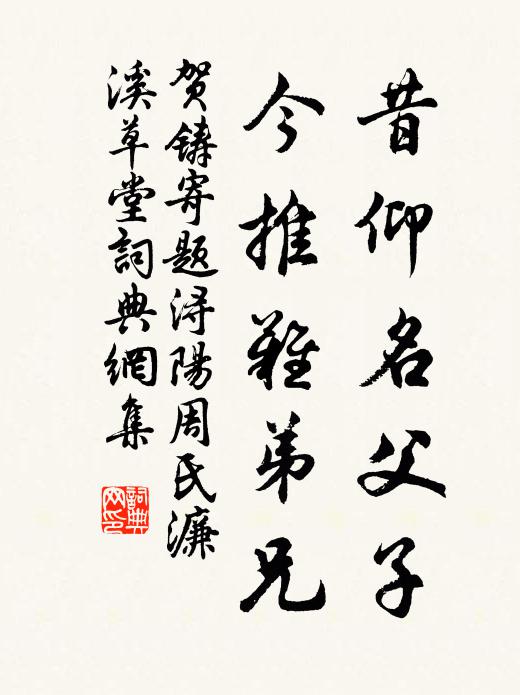 昔仰名父子
今推難弟兄
贺鑄寄题潯陽周氏濂
溪草堂詞典網集
詞典网印